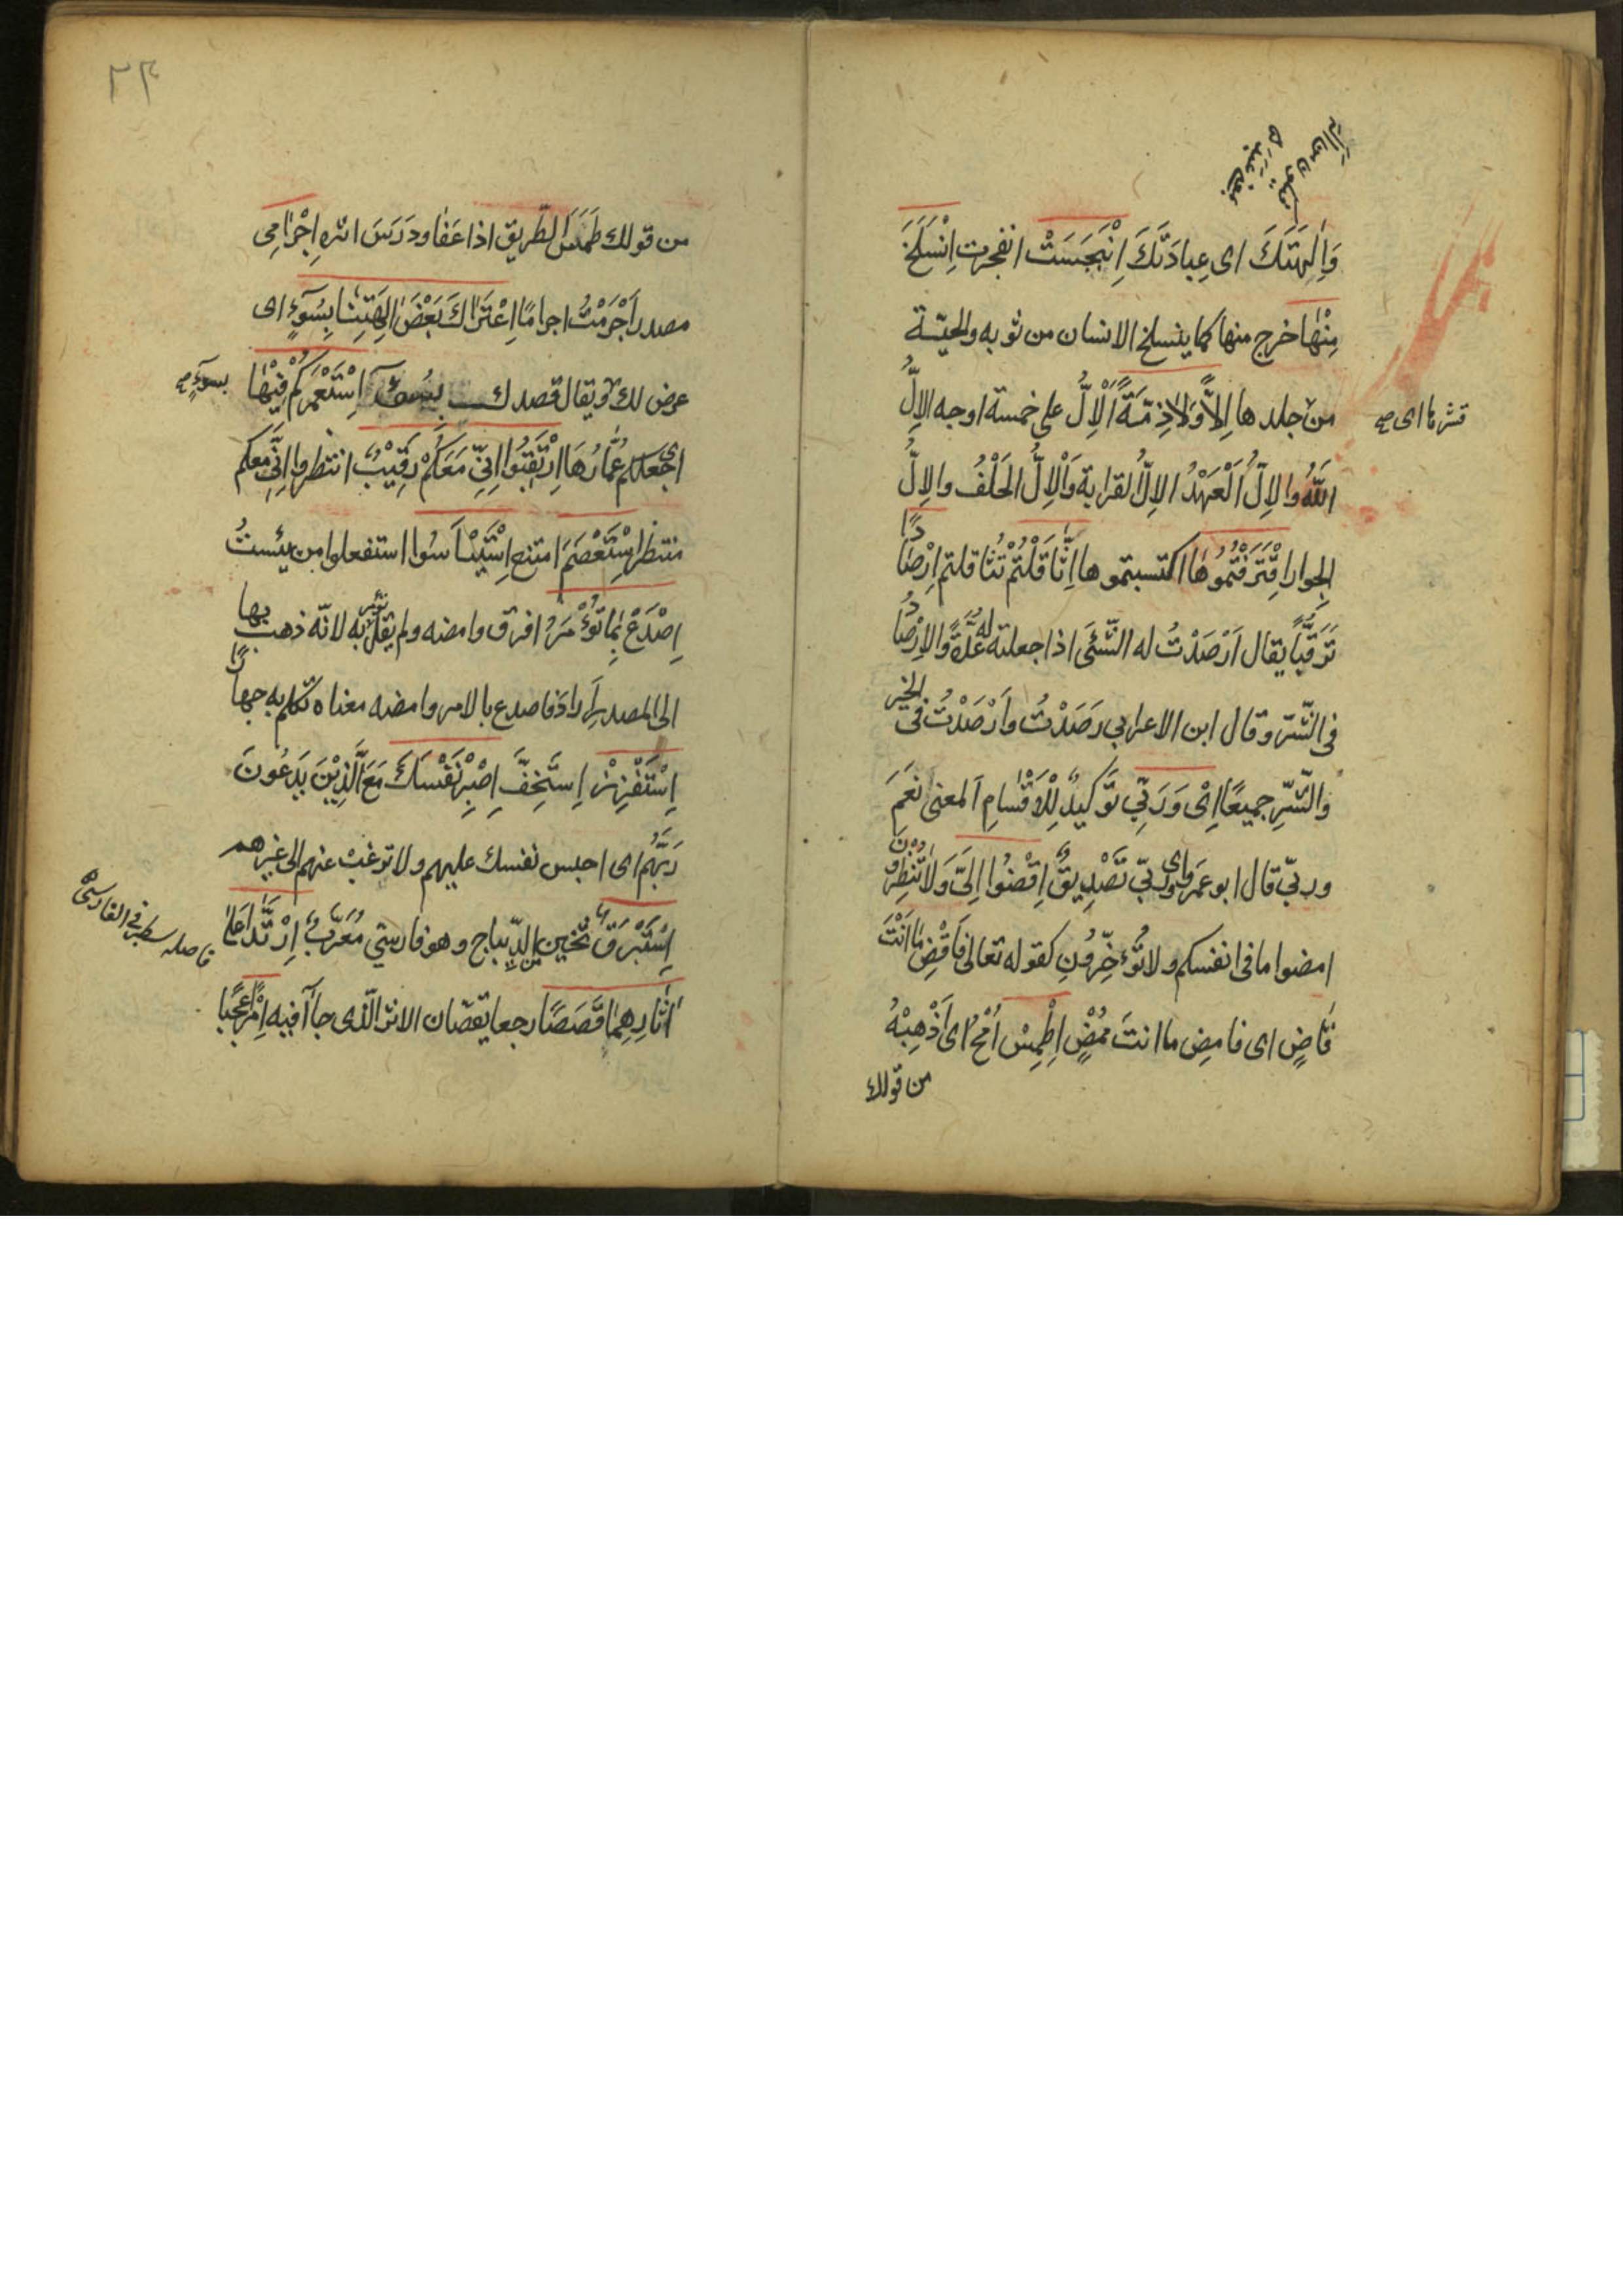 وَاِلٰهَتَكَ اى عِبادَتَكَ اِنْبَجَسَتْ انفجرت اِنْسَلَخَ
مِنْهٰا خرج منها كما ينسلخ الانسان من ثوبه والحيّة
من جلدها اِلاًّ وَلاٰ ذِمَّةً اَلْاِلُّ على خمسة اوجه الاِلُّ
قشرها اى
اللّٰهُ والاِلُّ اَلْعَهْدُ الاِلُّ القرابة وَاَلْاِلُّ الحَلْفُ والاِلُّ
الجِوار اِقْتَرَفْتُمُوهٰا اكتسبتموها اِثّٰاقَلْتُمْ تَثاقلتم اِرْصٰادًا
تَرَقُّبًا يقال اَرْصَدْتُ له الشَّئَ اذا جعلته له عُدَّةً والاِرْصٰادُ
فى الشّرّ وقال ابن الاعرابي رَصَدْتُ وَاَرْصَدْتُ فى الخير
والشّرِّ جميعًا اِىْ وَرَبِّي تَوكيدٌ لِلْاَقْسٰامِ المعنى نَعَمَ
وربّى قال ابو عمرو اى وربّي تَصْدِيقٌ اِقْضُوا اِلَىَّ وَلاٰتُنْظِرُونَ
امضوا ما فى انفسكم ولا تُوءَخِّرُونِ كقوله تعالى فَاقْضِ مٰا اَنْتَ
قٰاضٍ اى فامضِ ما انتَ مُمْضٍ اِطْمِسْ اُمْحُ اى اَذْهِبْهُ
من قولك
٢٣
من قولك طَمَسَ الطّريق اذا عَفٰا ودَرَسَ اثره اِجْرٰامِى
مصدر اَجْرَمْتُ اجرامًا اِعْتَرٰاكَ بَعْضُ اٰلِهَتِنٰا بِسُوۤءٍ اى
عرض لك ويقال قصدك بِسُوۤء اِسْتَعْمَرَكُمْ فِيْهٰا
بسوۤءٍ
اى جعلكم عُمّٰارُهَا اِرْتَقِبُوا اِنِّى مَعَكُمْ رَقِيْبٌ انتظروا اِنِّى معكم
منتظر اِسْتَعْصَمَ امتنع اِسْتَيْـٔاَسُوا استفعلوا من يئستُ
اِصْدَعْ بِمٰا تُوْءمَرُ افرق وامضه ولم يقل تؤمر به لانّه ذهب بها
الى المصدر اَراد فاصدع بالامر وامضه معناه تكلم به جهارًا
اِسْتَفْزِزْ اِسْتَخِفَّ اِصْبِرْ نَفْسَكَ مَعَ الَّذِيْنَ يَدعُونَ
رَبَّهُم اى احبس نفسك عليهم ولا ترغبْ عنهم الى غيرهم
اِسْتَبْرَقٌ ثخين من الدّيباج وهو فارسيّ مُعَرَّبٌ اِرْتَدّٰا عَلىٰ
اٰثٰارِهِمٰا قَصَصًا رجعا يقصّان الاثر الّذى جاۤآ فيه اِمْرًا عَجَبًا